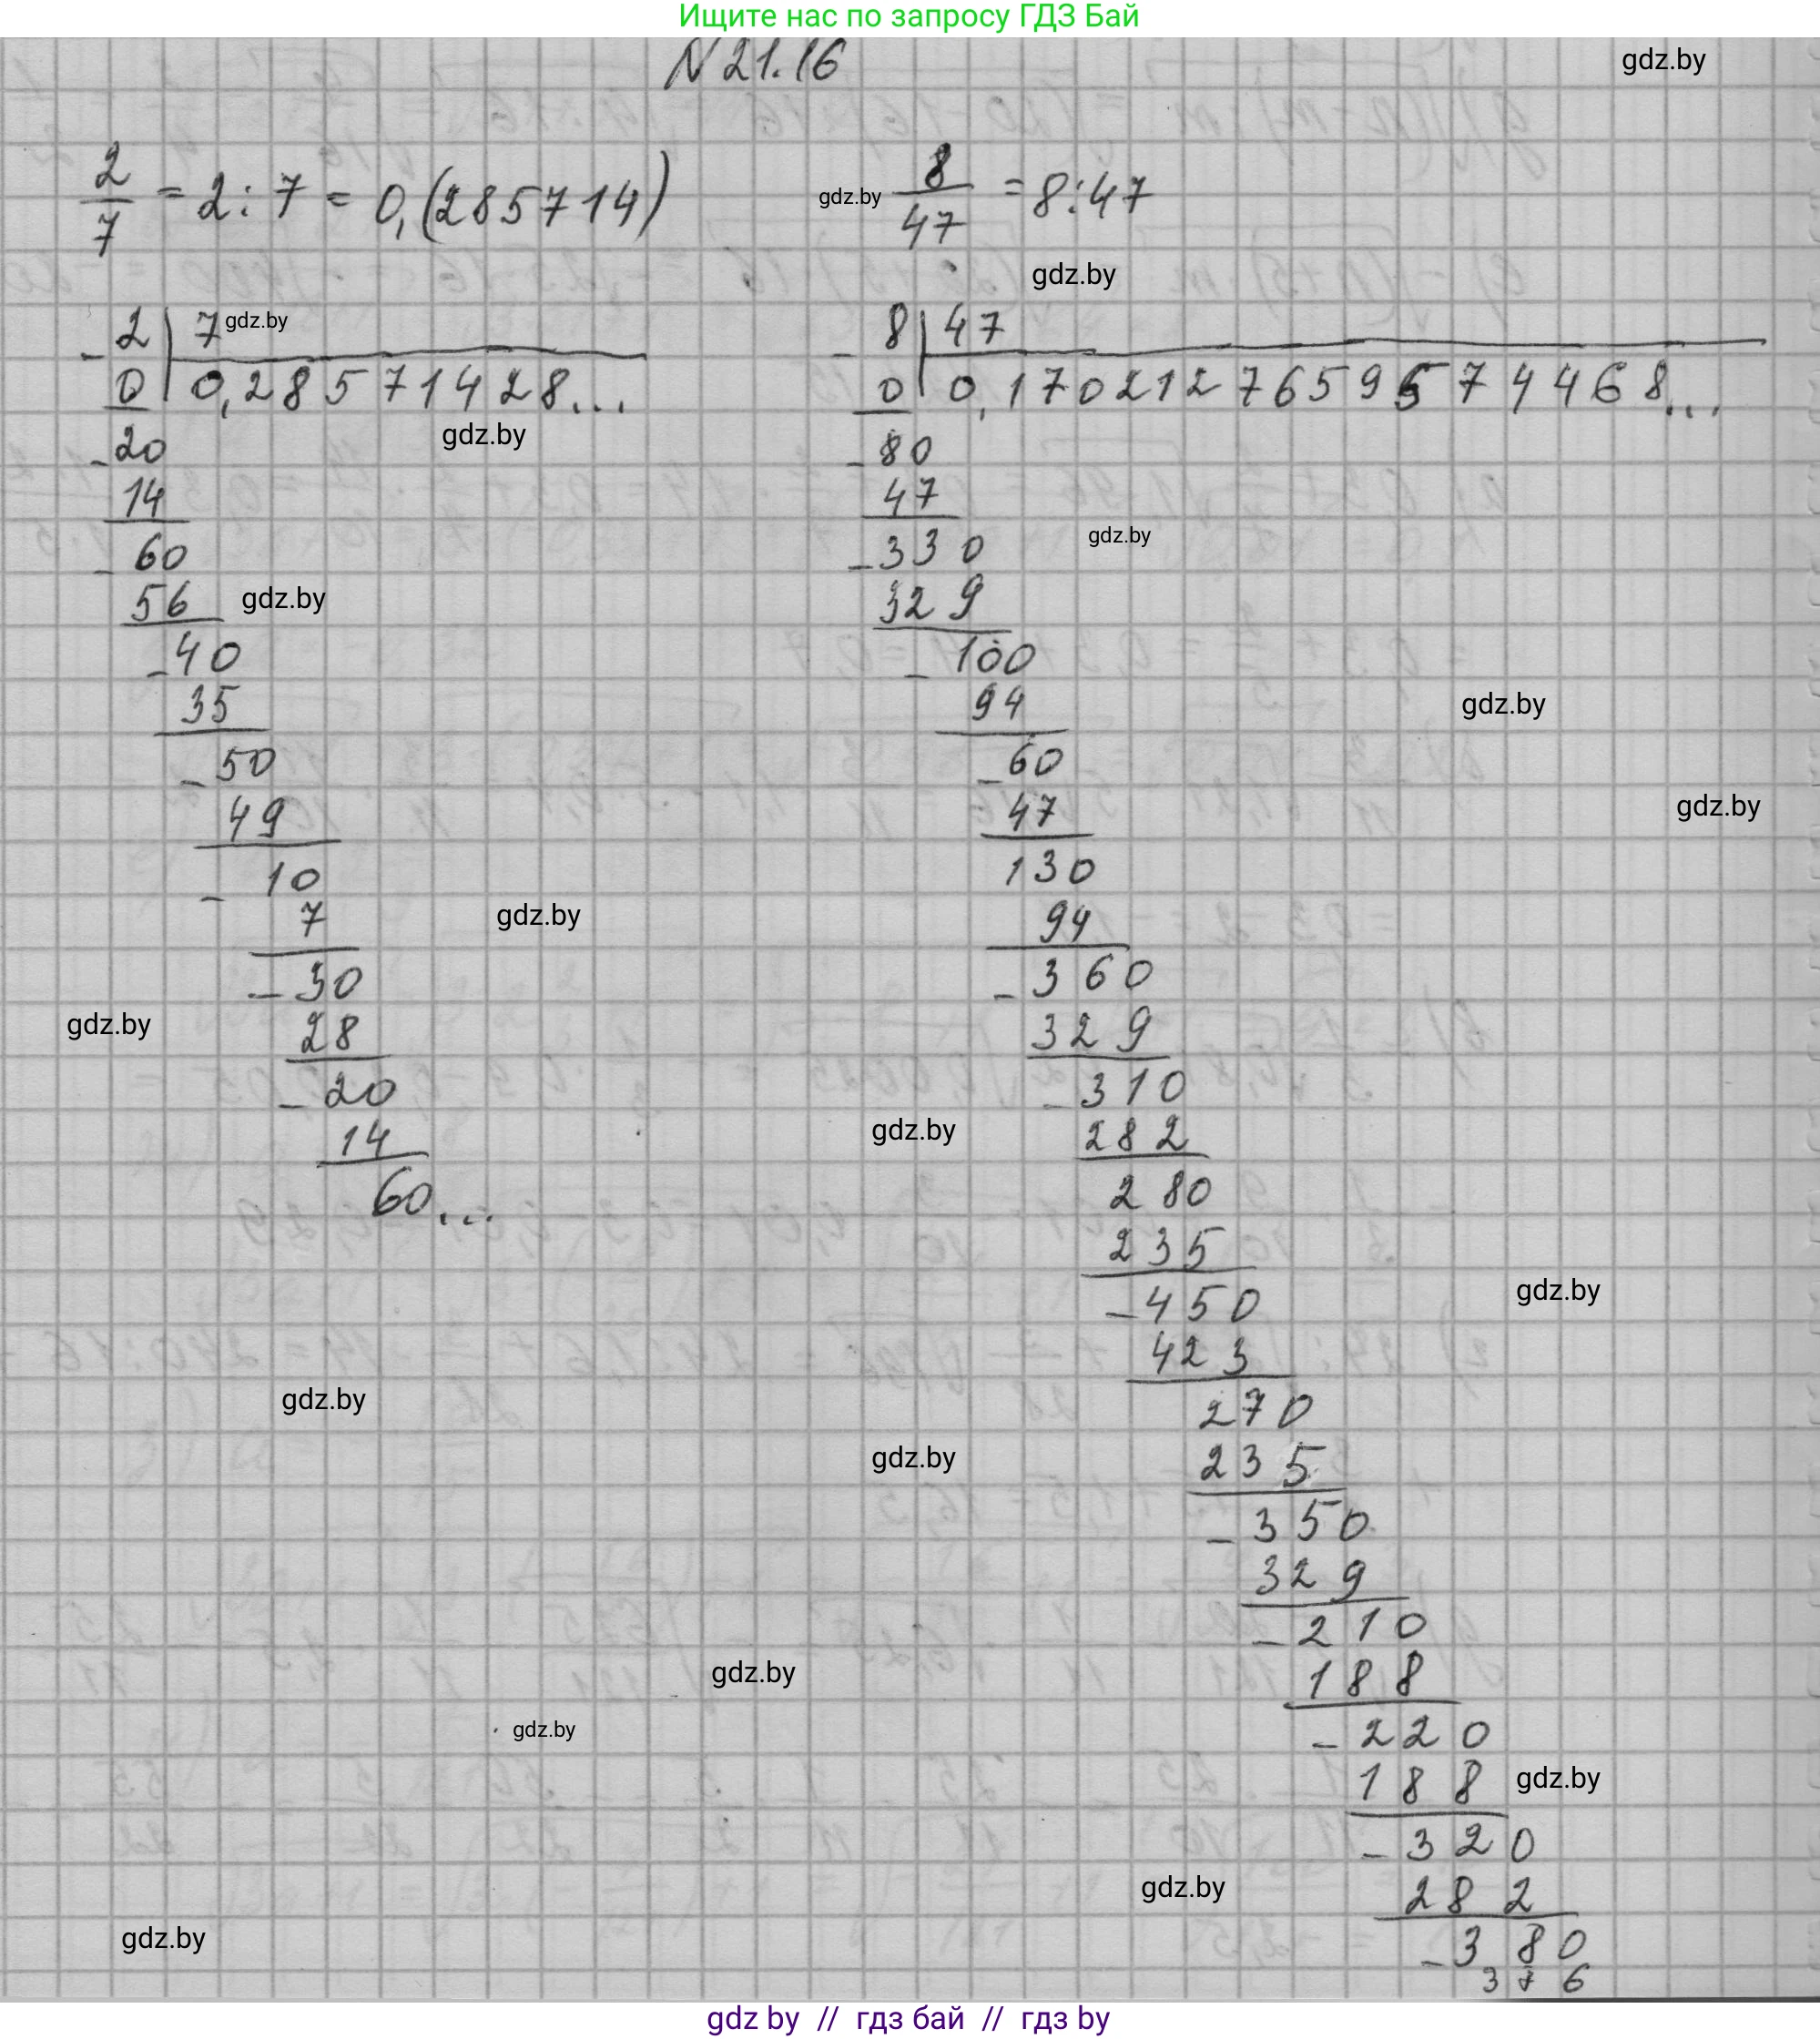 Ищите нас по запросу ГДЗ Бай
N 21.16
gdz.by
2/7 = 2 : 7 = 0,(285714)
gdz.by
8/47 = 8:47
gdz.by
2 | 7
gdz.by
0 | 0,28571428...
gdz.by
20
14
60
56
gdz.by
40
35
50
49
10
7
gdz.by
30
28
gdz.by
20
14
60...
gdz.by
gdz.by
gdz.by
gdz.by
8 | 47
0 | 0,1702127659574468...
80
47
330
gdz.by
329
100
94
gdz.by
60
47
gdz.by
130
94
360
329
310
282
gdz.by
280
235
450
gdz.by
423
270
235
gdz.by
350
329
210
188
220
188
gdz.by
320
282
gdz.by
380
376
gdz by // гдз бай // гдз by